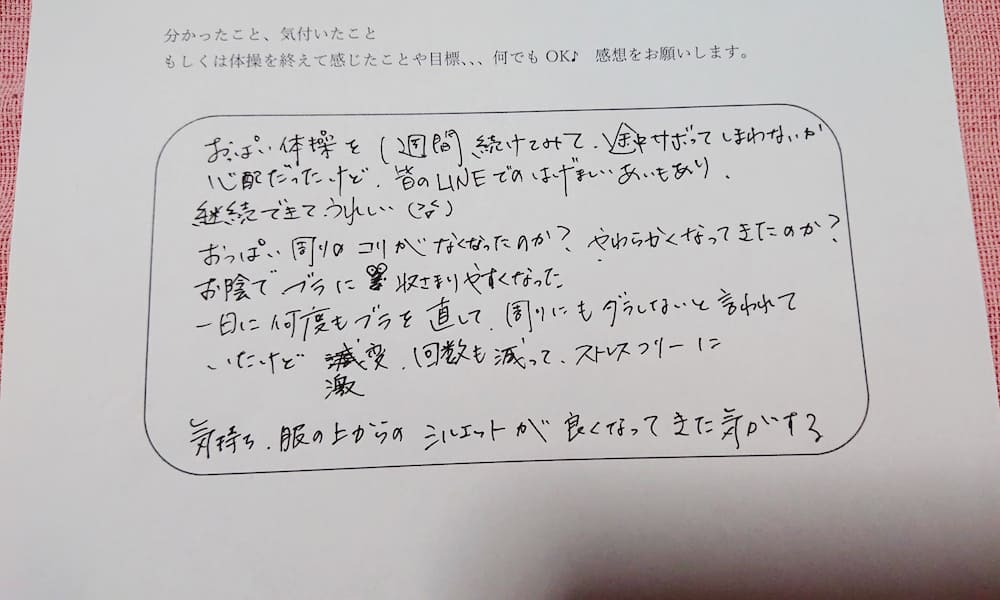 分かったこと、気付いたこと
もしくは体操を終えて感じたことや目標、、、何でもOK♪ 感想をお願いします。
おっぱい体操を1週間続けてみて、途中サボってしまわないか
心配だったけど、皆のLINEでのはげましあいもあり、
継続できてうれしい(笑)
おっぱい周りのコリがなくなったのか?やわらかくなってきたのか?
お陰でブラに収さまりやすくなった
一日に何度もブラを直して、周りにもダラしないと言われて
いたけど激変、回数も減って、ストレスフリーに
気持ち、服の上からのシルエットが良くなってきた気がする